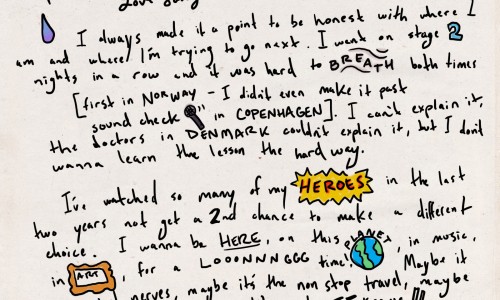 I always made it a point to be honest with where I
am and where I'm trying to go next. I went on stage 2
nights in a row and it was hard to BREATH both times
[first in NORWAY - I didn't even make it past
sound check " in COPENHAGEN]. I can't explain it,
the doctors in DENMARK couldn't explain it, but I don't
wanna learn the lesson the hard way.
I've watched so many of my HEROES in the last
two years not get a 2nd chance to make a different
choice. I wanna be HERE, on this PLANET, in music,
in ART for a LOOONNNGGG time! Maybe it
nerves, maybe it's the non stop travel, maybe